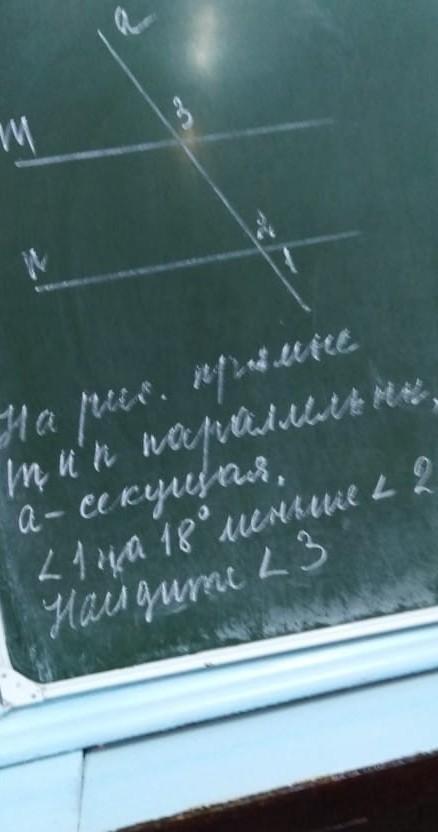 a
3
m
2
n
1
На рис. прямые
m и n параллельны,
a - секущая.
∠1 на 18° меньше ∠2
Найдите ∠3